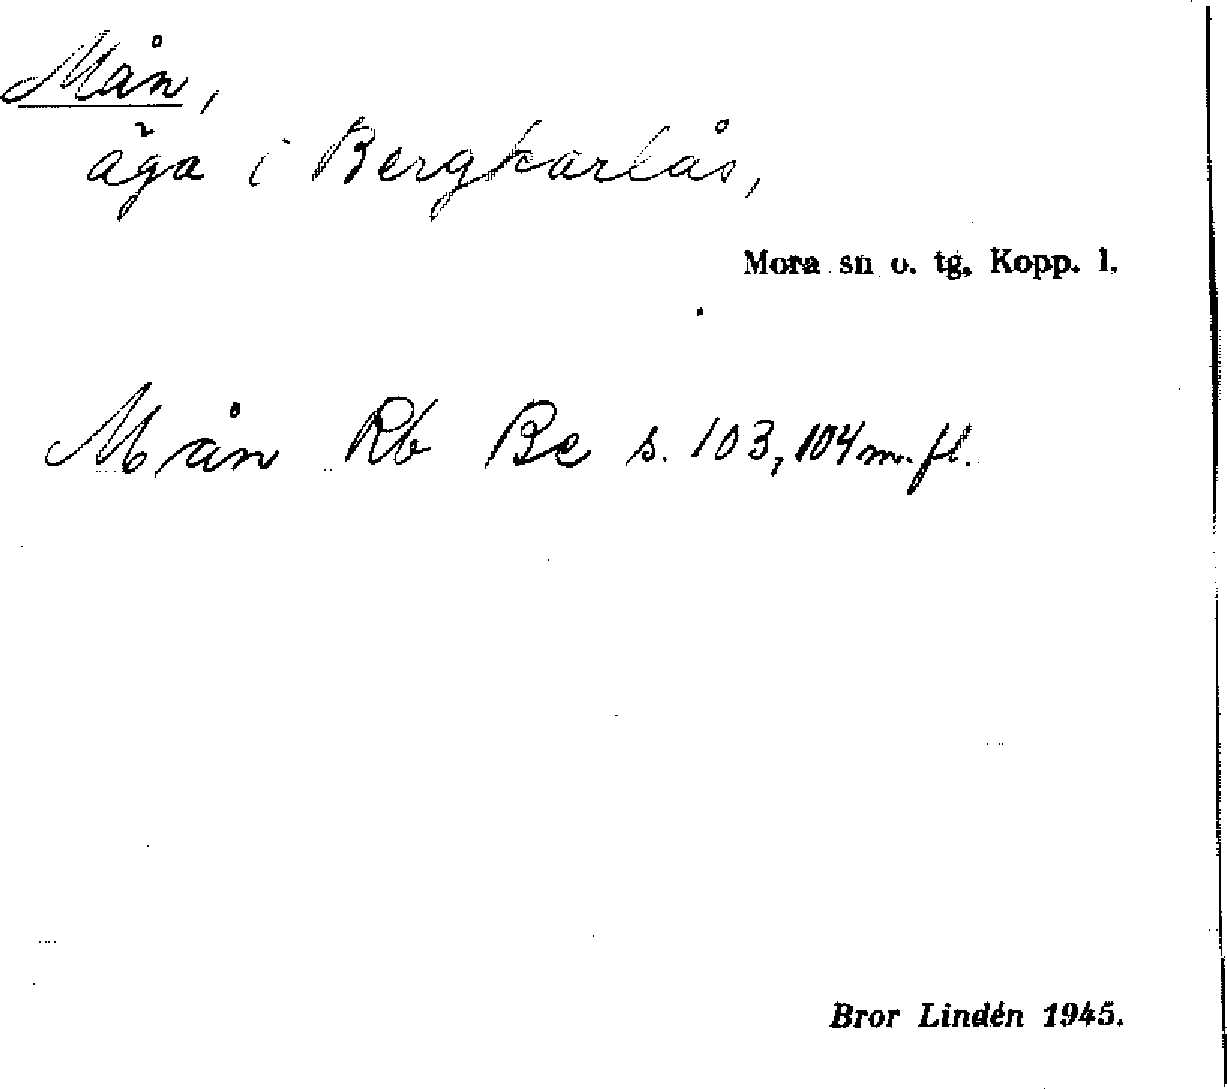 Mån,
äga i Bergkarlås,
Mora sn o. tg, Kopp. l.
Mån Rb Be s. 103, 104 m. fl.
Bror Lindén 1945.